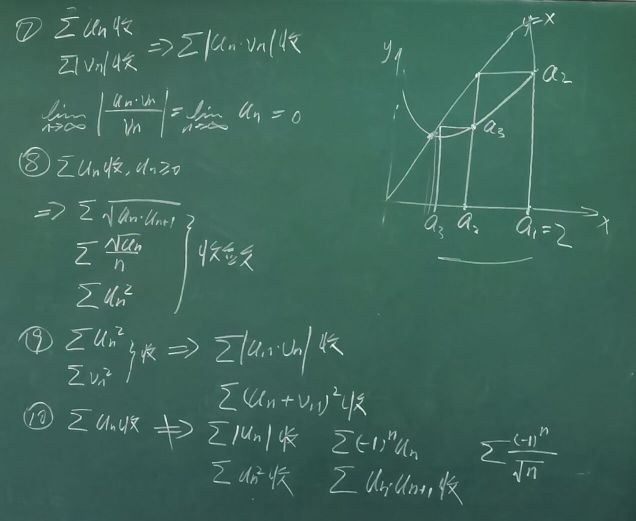 ⑦ Σ Un 收
Σ|Vn|收 ⇒ Σ|Un·Vn|收
lim n→∞ |Un·Vn / Vn| = lim n→∞ Un = 0
⑧ Σ Un收, Un≥0
⇒ Σ √Un·Un+1
Σ √Un / n
Σ Un²
收
⑨ Σ Un²
Σ Vn² } 收 ⇒ Σ|Un·Vn| 收
Σ (Un + Vn)² 收
⑩ Σ Un收 ⇏ Σ|Un|收 Σ(-1)ⁿUn Σ (-1)ⁿ / √n
Σ Un²收 Σ Un·Un+1收
y
y=x
a2
a3
a3 a2 a1=2 x